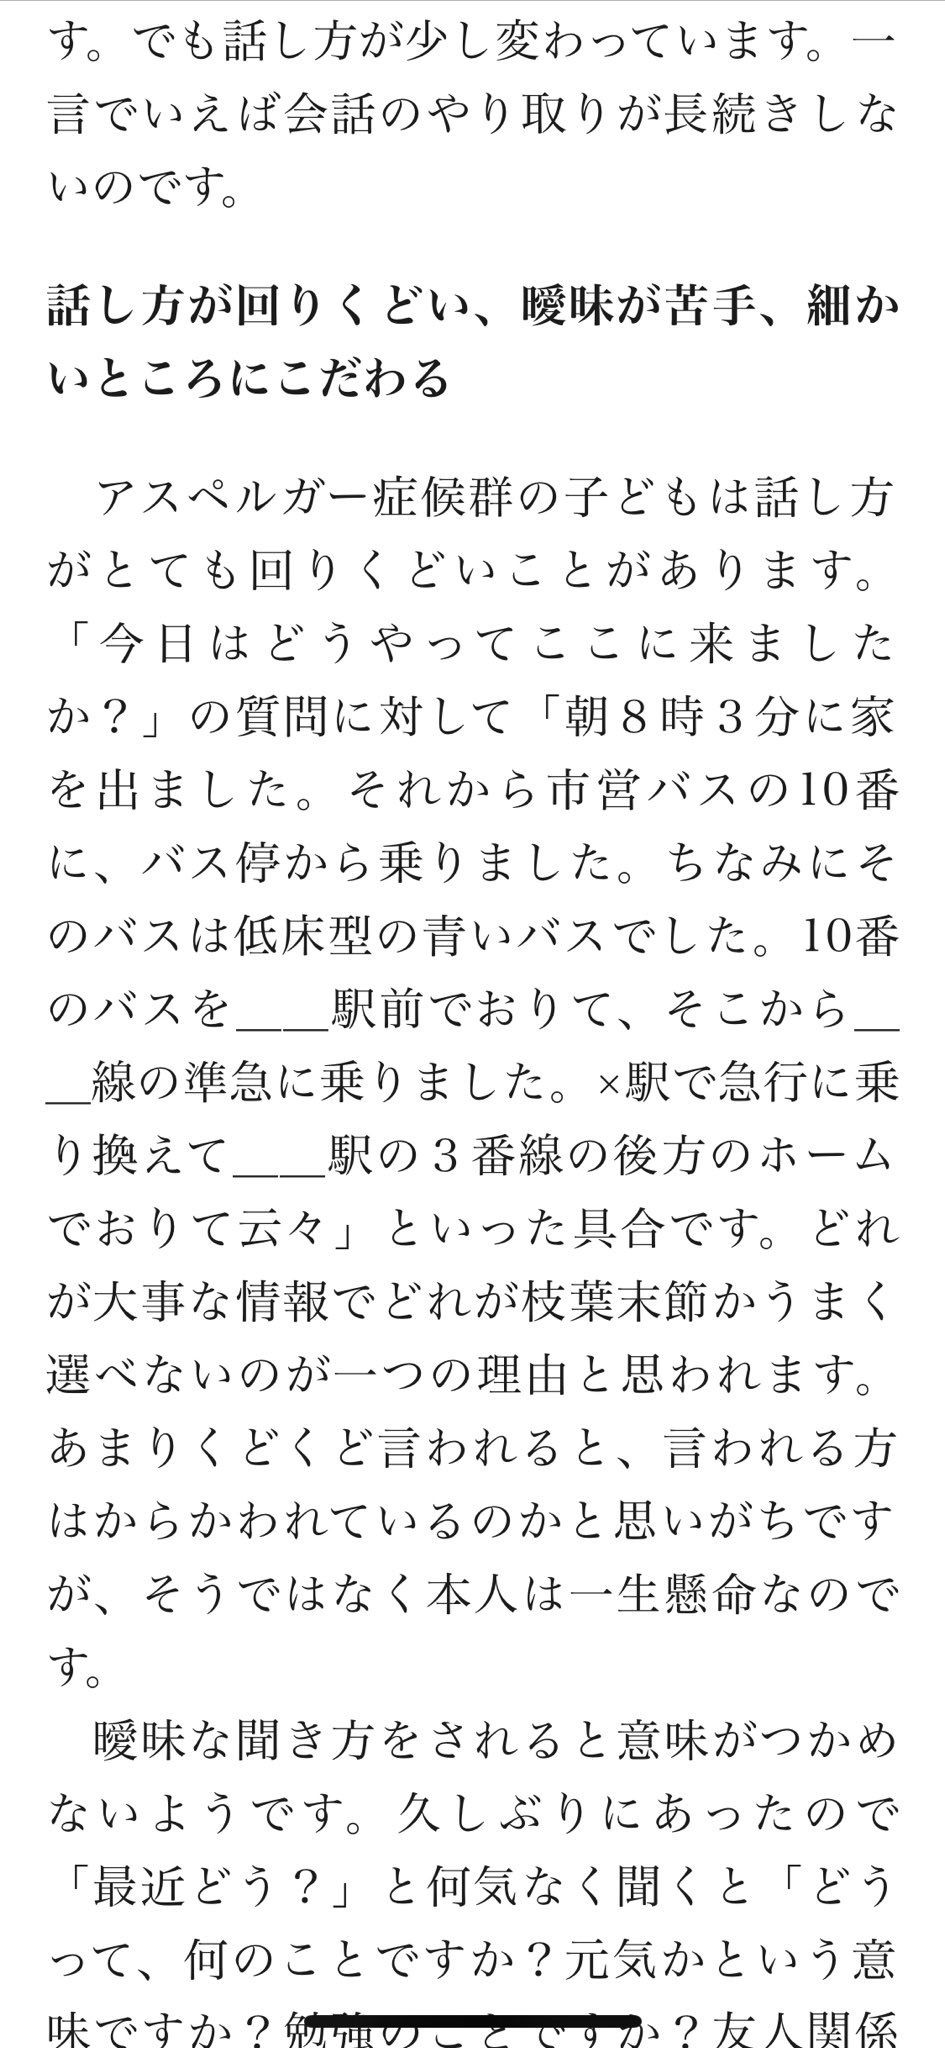 す。でも話し方が少し変わっています。一
言でいえば会話のやり取りが長続きしな
いのです。
話し方が回りくどい、曖昧が苦手、細か
いところにこだわる
アスペルガー症候群の子どもは話し方
がとても回りくどいことがあります。
「今日はどうやってここに来ました
か？」の質問に対して「朝８時３分に家
を出ました。それから市営バスの10番
に、バス停から乗りました。ちなみにそ
のバスは低床型の青いバスでした。10番
のバスを＿＿駅前でおりて、そこから＿
＿線の準急に乗りました。×駅で急行に乗
り換えて＿＿駅の３番線の後方のホーム
でおりて云々」といった具合です。どれ
が大事な情報でどれが枝葉末節かうまく
選べないのが一つの理由と思われます。
あまりくどくど言われると、言われる方
はからかわれているのかと思いがちです
が、そうではなく本人は一生懸命なので
す。
曖昧な聞き方をされると意味がつかめ
ないようです。久しぶりにあったので
「最近どう？」と何気なく聞くと「どう
って、何のことですか？元気かという意
味ですか？勉強のことですか？友人関係